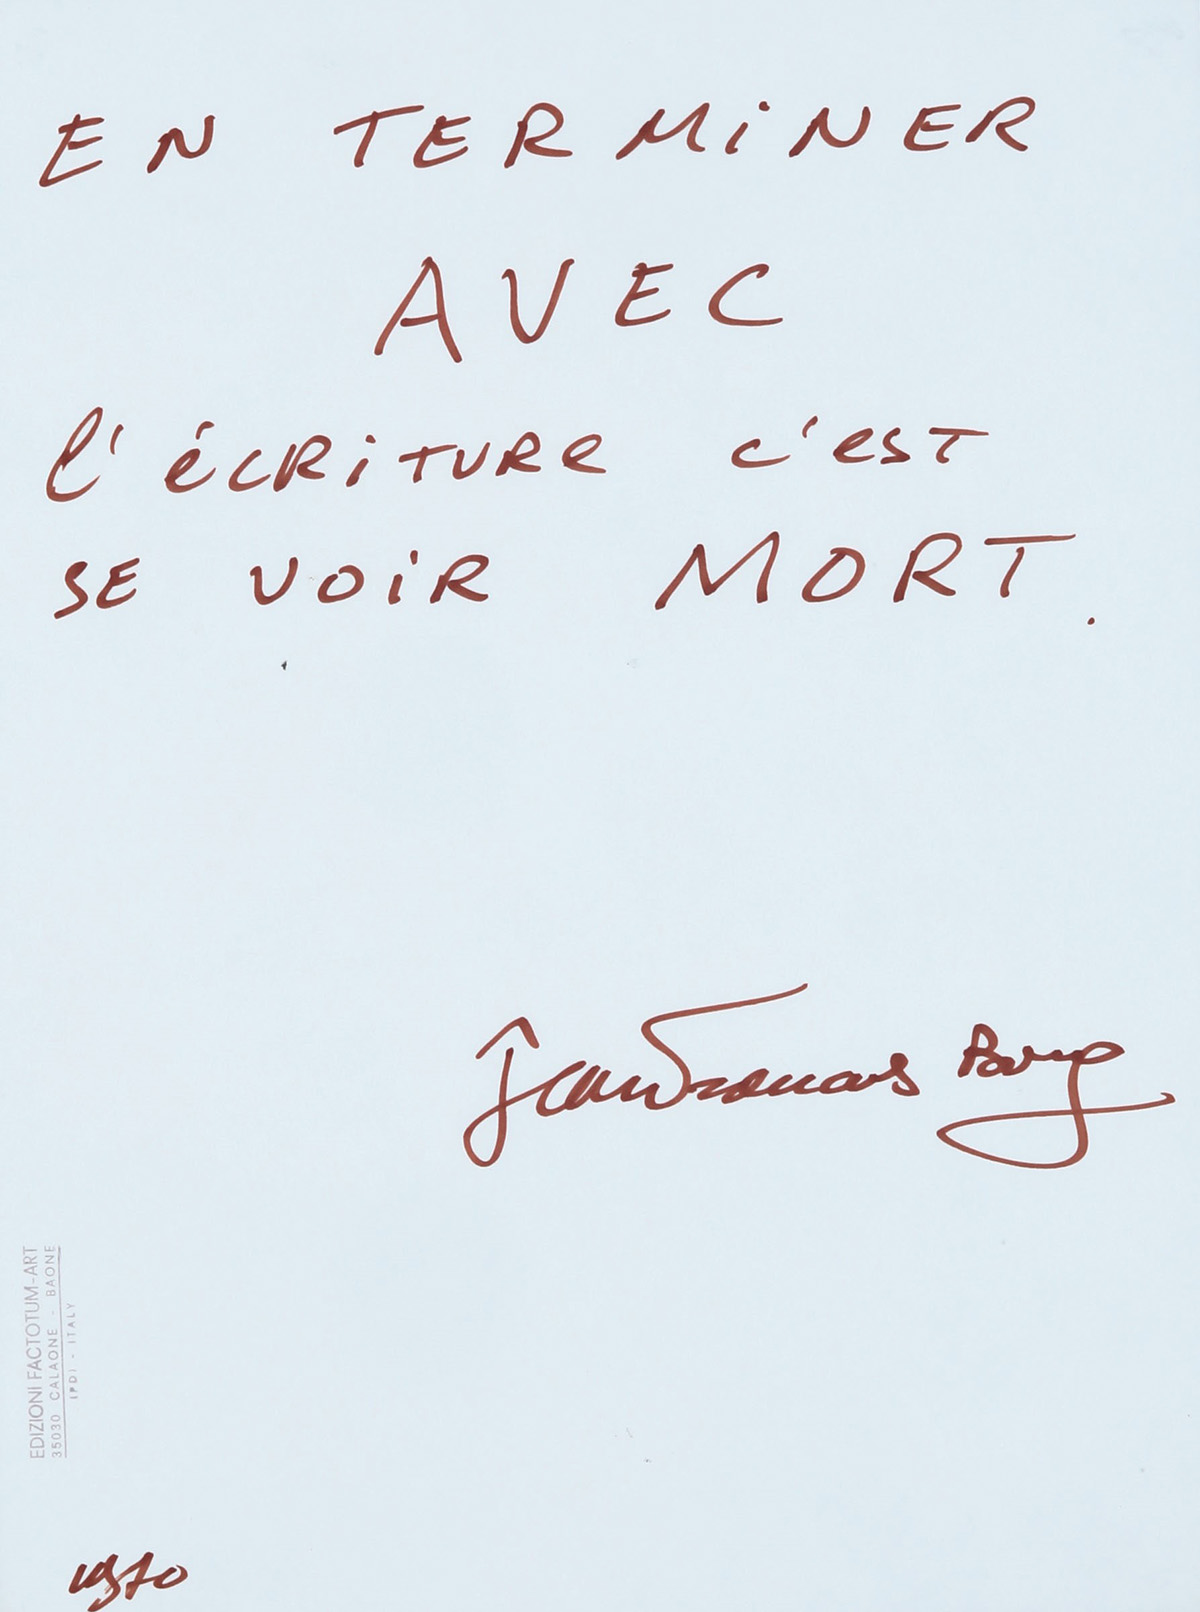 EN TERMINER
AVEC
l'écriture c'est
SE VOIR MORT.
EDIZIONI FACTOTUM-ART
35030 CALAONE - BAONE
(PD) - ITALY